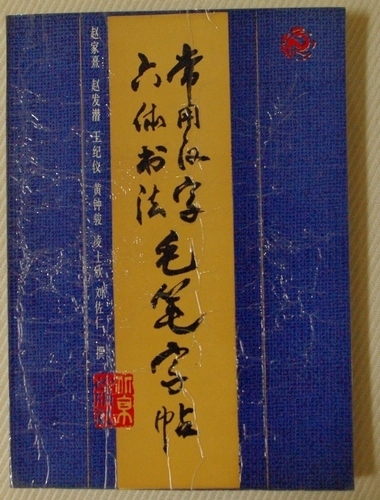 常用汉字
六体书法
毛笔字帖
赵家熹 赵发潜 王纪仪 黄钟骏 凌士欣 佐仁 撰